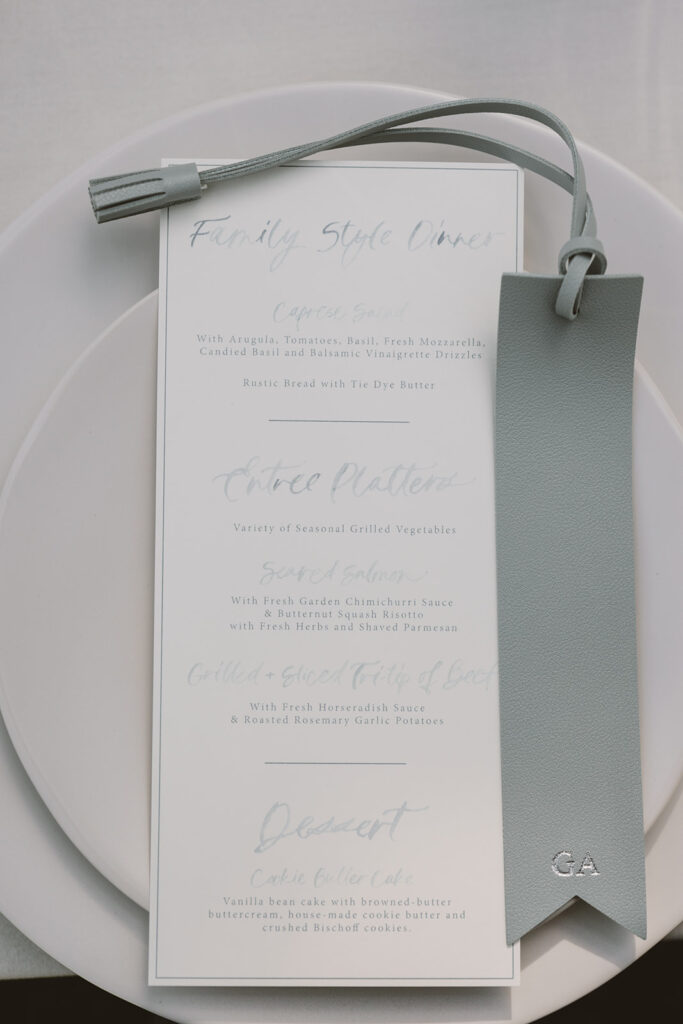 Family Style Dinner
Caprese Salad
With Arugula, Tomatoes, Basil, Fresh Mozzarella,
Candied Basil and Balsamic Vinaigrette Drizzles
Rustic Bread with Tie Dye Butter
Entree Platters
Variety of Seasonal Grilled Vegetables
Seared Salmon
With Fresh Garden Chimichurri Sauce
& Butternut Squash Risotto
with Fresh Herbs and Shaved Parmesan
Grilled + Sliced Tri-tip of Beef
With Fresh Horseradish Sauce
& Roasted Rosemary Garlic Potatoes
Dessert
Cookie Butter Cake
Vanilla bean cake with browned-butter
buttercream, house-made cookie butter and
crushed Bischoff cookies.
GA